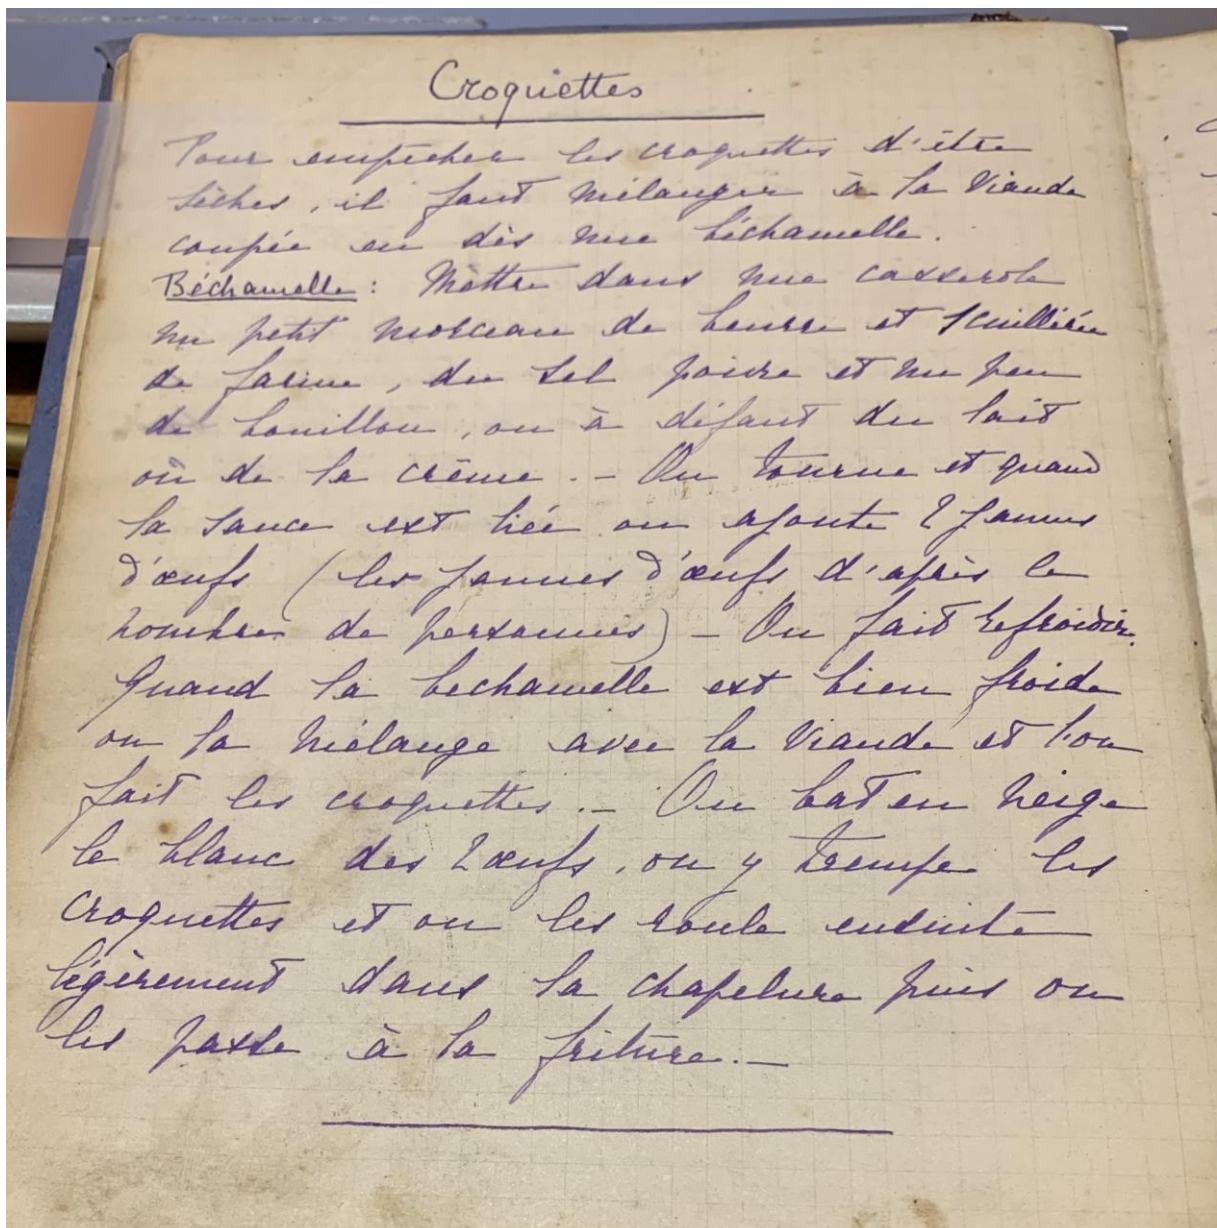 Croquettes
Pour empêcher les croquettes d'être
sèches, il faut mélanger à la viande
coupée en dès une béchamelle.
Béchamelle : Mettre dans une casserole
un petit morceau de beurre et 1 cuillérée
de farine, du sel poivre et un peu
de bouillon, ou à défaut du lait
où de la crème. - On tourne et quand
la sauce est liée on ajoute 2 jaunes
d'œufs (les jaunes d'œufs d'après le
nombre de personnes) - On fait refroidir.
Quand la bechamelle est bien froide
on la mélange avec la viande et l'on
fait les croquettes. - On bat en neige
le blanc des 2 œufs, on y trempe les
croquettes et on les roule ensuite
légèrement dans la chapelure puis on
les passe à la friture. -